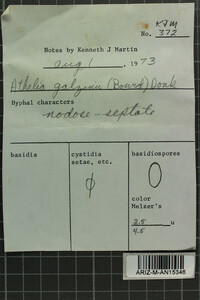 KJM
No. 372
Notes by Kenneth J Martin
Aug 1, 1973
Athelia galzinii (Bourd) Donk
Hyphal characters
nodose-septate
basidia
cystidia
setae, etc.
basidiospores
color
Melzer's
3.5 u
4.5
ARIZ-M-AN15346